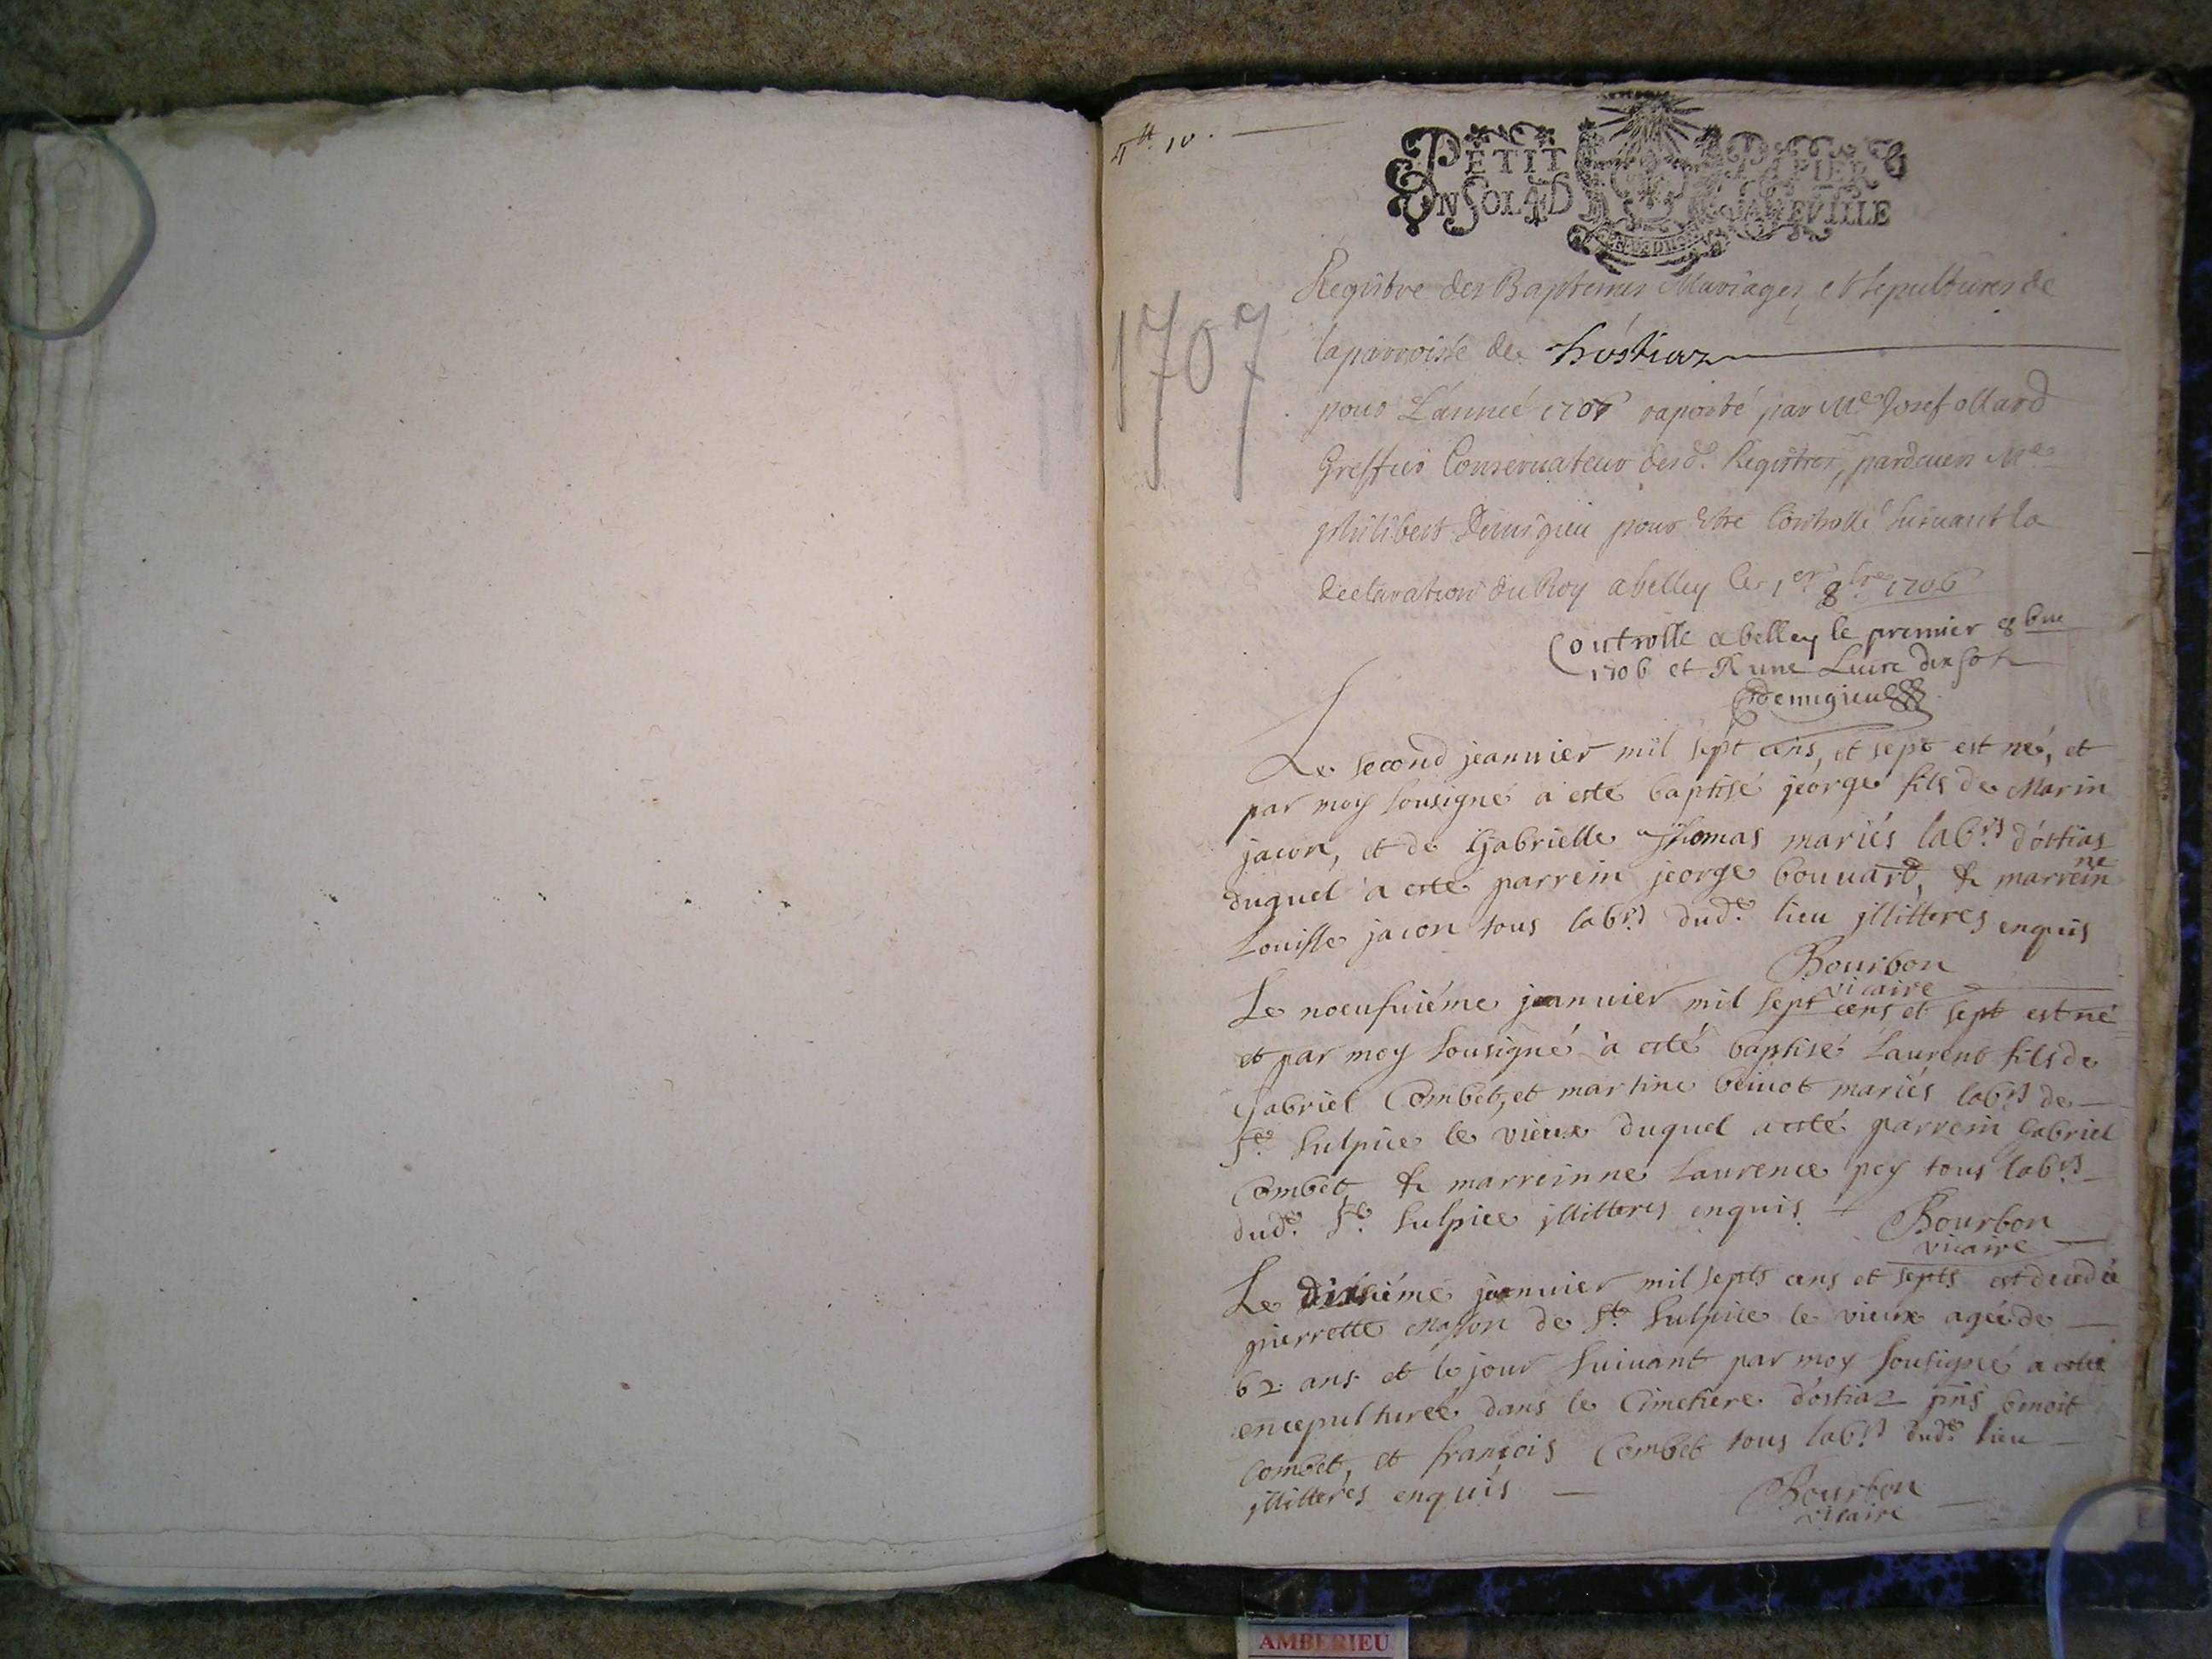 4tt. 10.
PETIT PAPIER
UN SOL 4D LA FEVILLE
1707
Registre des Baptemes Mariages, et sepultures de
la parroisse de hóstiaz
pour L'année 1707 raporté par Me Josef ollard
Greffier Conservateur desd. Registres, pardeuen Me
philibert Demigieu pour Etre Controllé suiuant la
declaration du Roy a belley le 1er 8bre 1706
Controlle a belley le premier 8bre
1706 et R une Liure dix sols
Demigieu
Le second jeanuier mil sépt cens, et sept est né, et
par moy sousigné a esté baptisé jeorge fils de Marin
jacon, et de Gabrielle Thomas mariés labrs d'óstiaz
duquel a esté parrein jeorge bouuard, & marreinne
Louisse jacon tous labrs dude. lieu jllitteres enquis
Bourbon
vicaire
Le noeufuiéme jeanuier mil sept cens et sept est né
et par moy sousigné à esté baptisé Laurent fils de
Gabriel Combét, et martine beinot mariés labrs de
St. Sulpice le vieux duquel a esté parrein Gabriel
Combét, & marreinne Laurence pey tous labrs
dude. St. Sulpice jllitteres enquis
Bourbon
vicaire
Le dixiéme jeanuier mil septs cens et septs est decedée
pierrette Masson de St. Sulpice le vieux agée de
62 ans et le jour suiuant par moy sousigné a estée
encepulturée dans le Cimetiere d'ostiaz pns benoit
Combét, et francois Combét tous labrs dude. lieu
jllitterés enquis
Bourbon
vicaire
AMBERIEU